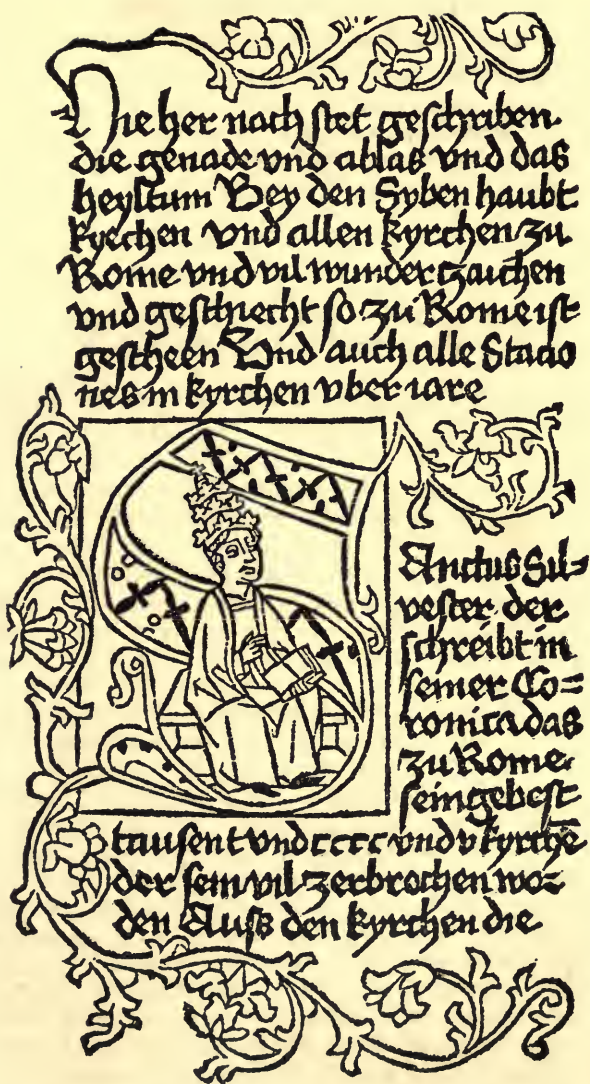 Hie her nach stet geschriben.
die genade vnd ablas vnd das
heyltum Bey den Syben haubt
kyrchen vnd allen kyrchen zu
Rome vnd vil wunderczaichen
vnd geschiecht so zu Rome ist
gescheen Vnd auch alle Stacio
nes in kyrchen vber iare
Sanctus Sil=
vester der
schreibt in
seiner Co=
ronica das
zu Rome.
sein gebest
tausent vnd cccc vnd v kyrchē
der sein vil zerbrochen wo=
den Auss den kyrchen die